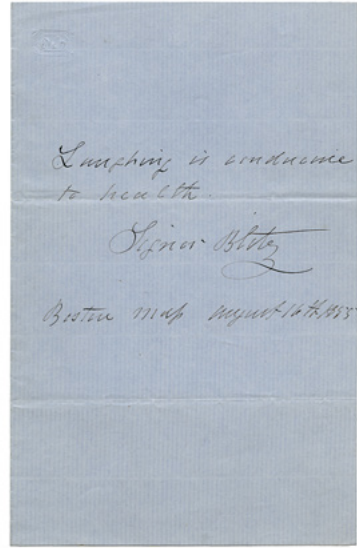 Laughing is conducive
to health.
Signor Blitz
Boston Mass august 16th, 1855